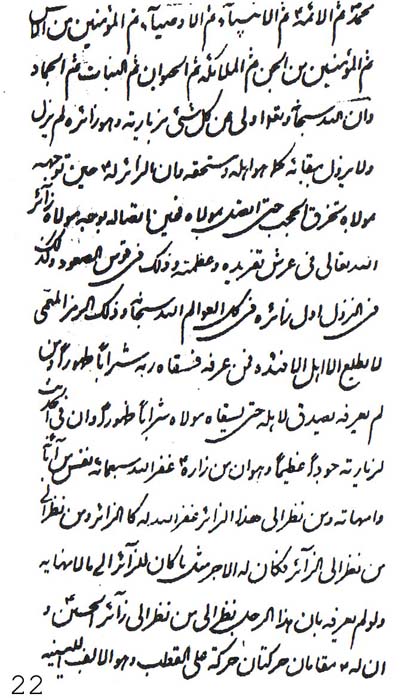 محمد ثم الائمة ثم الانبيآء ثم الاوصيآء ثم المؤمنين من الانس
ثم المؤمنين من الجن ثم الملائكه ثم الحيوان ثم النبات ثم الجماد
وان الله سبحانه وتعالى اولى من كل شئ بزيارته وهو زائره لم يزل
ولا يزول ببقائه كما هو اهله ومستحقه وان الزائر له حين توجهه
مولاه يخرق الحجب حتى اتصل بمولاه فحين اتصاله بوجه مولاه زائر
الله تعالى فى عرش تفريده وعظمته وذلك فى قوس الصعود وكذلك
فى النزول اول زائره فى كل العوالم الله سبحانه وذلك الرمز المعمى
لا يطلع الا اهل الافئدة فمن عرفه فسقاه ربه شرابا طهورا ومن
لم يعرفه يصدق لاهله حتى يسقاه مولاه شرابا طهورا وان فى الحديث
لزيارته حدودا عظيما وهو ان من زاره غفر الله سبعمائة نفس من آبآئه
وامهاته ومن نظر الى هذا الزائر غفر الله له كالزائر ومن نظر الى
من نظر الى الزآئر فكان له الاجر مثل ما كان للزآئر الى مالانهايه
ولو لم يعرفه بان هذا الرجل نظر الى من نظر الى زآئر الحسين و
ان له مقامان حركتان حركة على القطب وهو الالف اللينيه
22